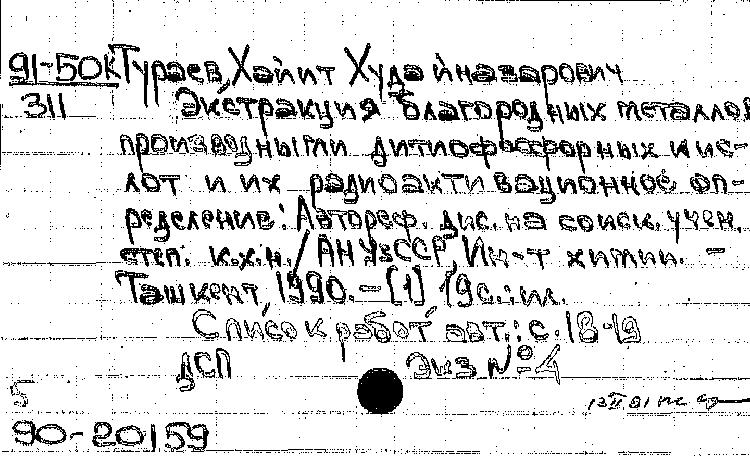 91-50к Тураев, Хайит Худайназарович
311 Экстракция благородных металлов
производными дитиофосфорных кис-
лот и их радиоактивационное оп-
ределение: Автореф. дис. на соиск. учен.
степ. к.х.н. / АН УзССР, Ин-т химии. -
Ташкент, 1990. - [1] 19с.: ил.
Список работ авт.: с. 18-19
ДСП Экз № 4
5
90-20159